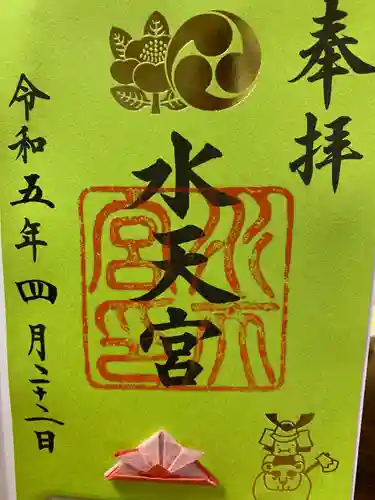 奉拝
水天宮
令和五年四月二十二日